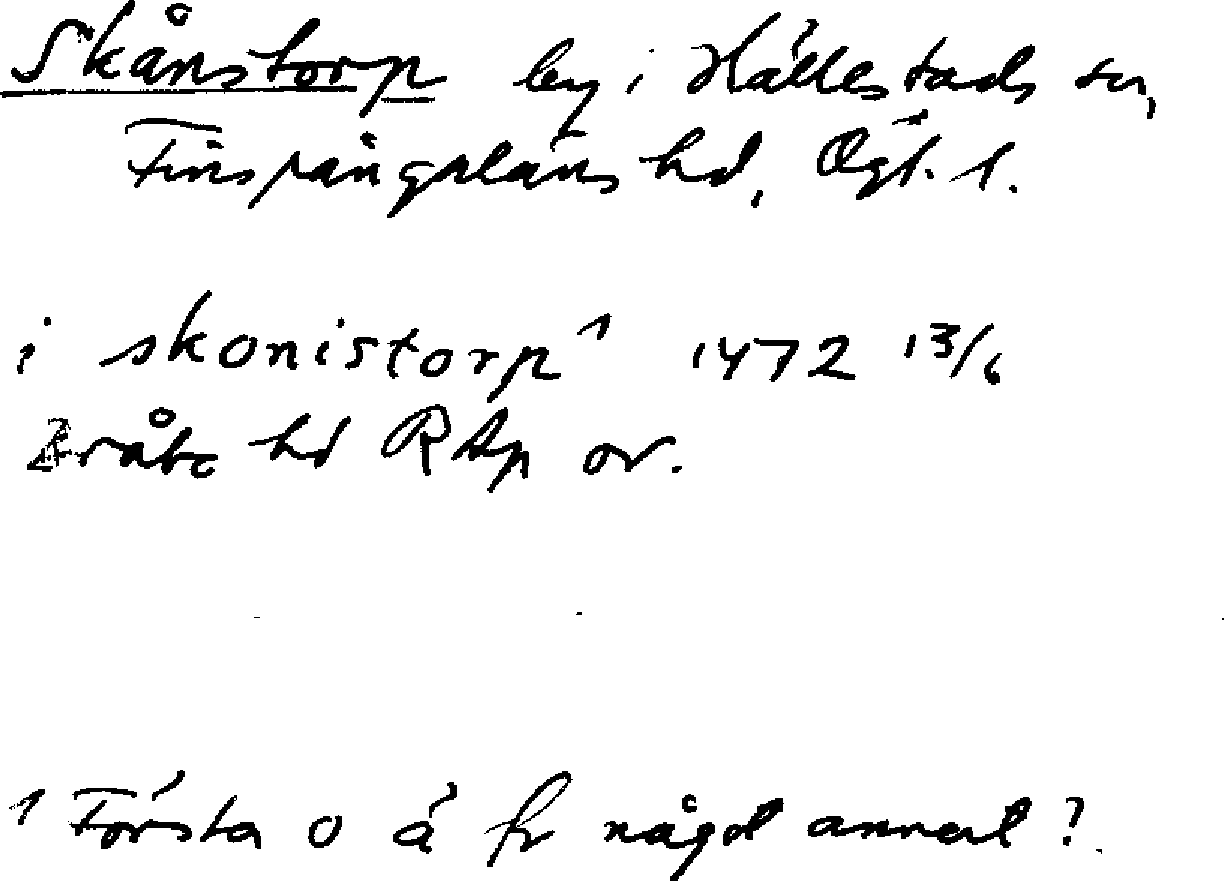 Skånstorp by i Hällestads sn,
Finspångaläns hd, Ögl. l.
i skonistorp¹ 1472 13/6
Bråbo hd RAp or.
¹ Första o ä fr något annat?